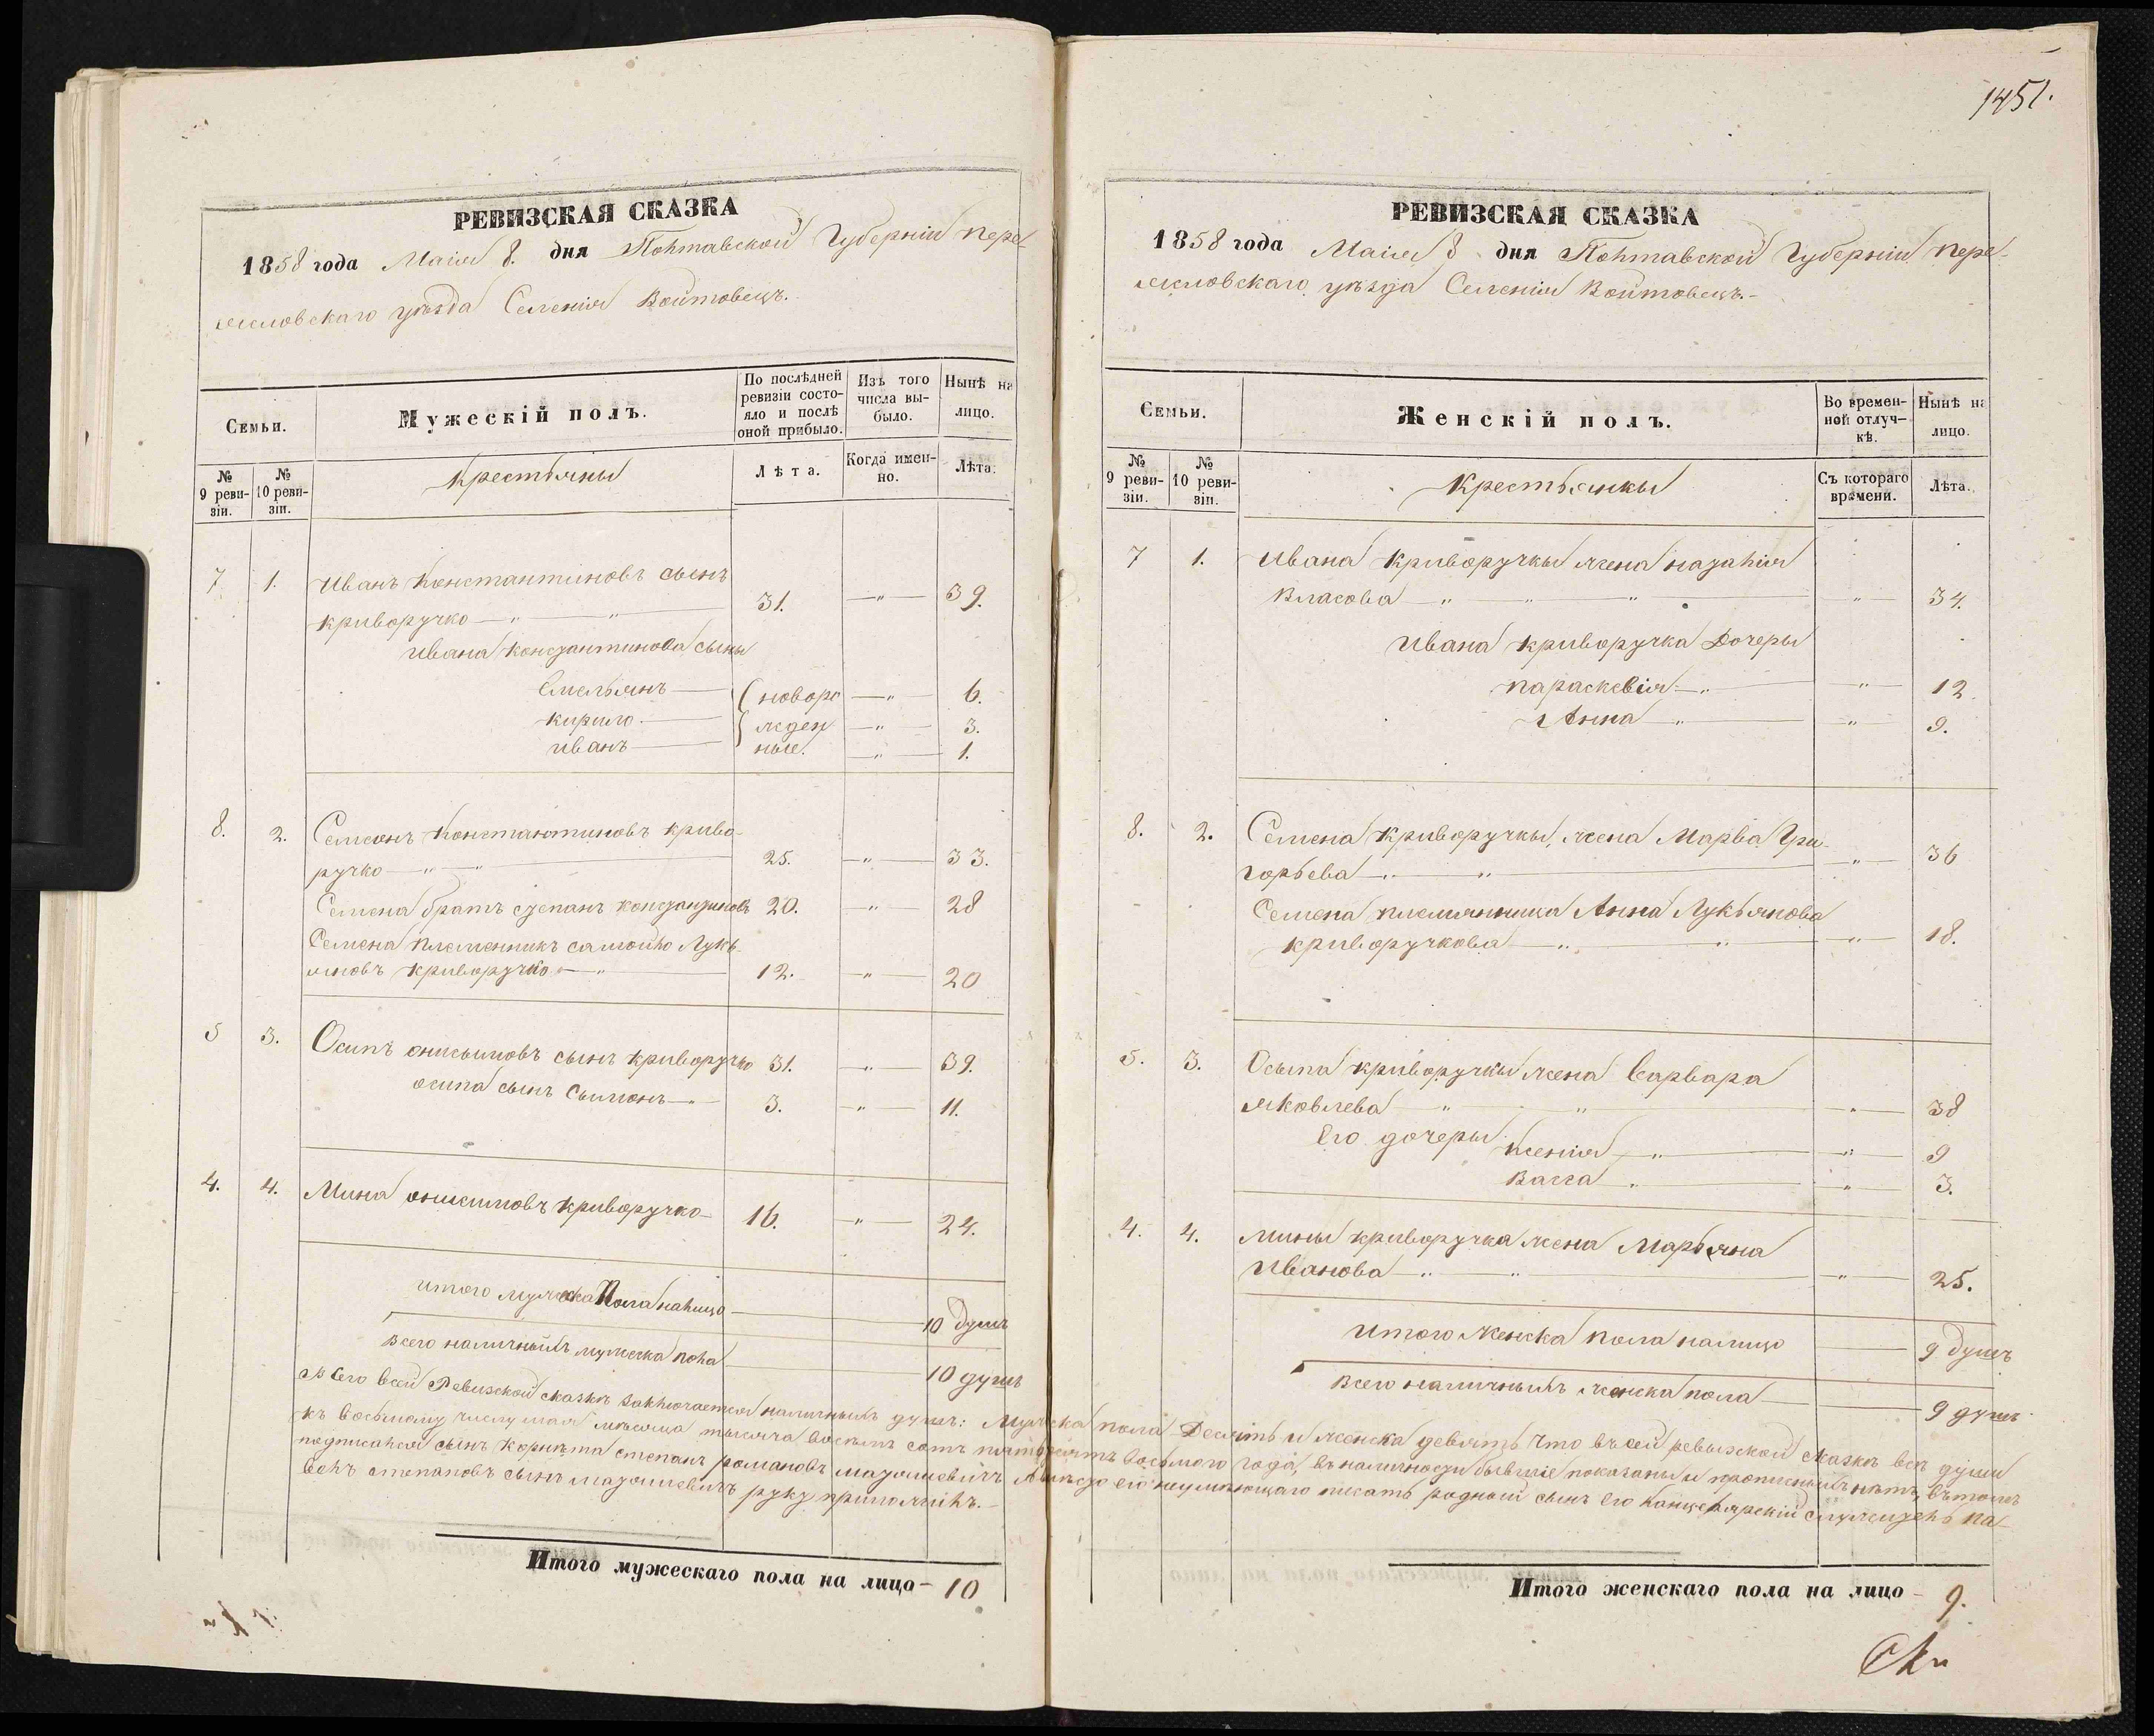 РЕВИЗСКАЯ СКАЗКА
1858 года Маія 8. дня Полтавской Губерніи Пере-
яселовскаго уѣзда Селенія Войтовецъ.
Семьи.
Мужескій полъ.
По послѣдней ревизіи состо-яло и послѣ оной прибыло.
Изъ того числа вы-было.
Нынѣ на лицо.
№ 9 реви-зіи.
№ 10 реви-зіи.
Крестьяны
Лѣта.
Когда имен-но.
Лѣта.
7 1. Иванъ Константиновъ сынъ
Криворучко — „ — „ — 31. — „ — 39.
Ивана Константинова сыны
Емельянъ — новоро — „ — 6.
Кирило — жден — „ — 3.
Иванъ — ные. — „ — 1.
8. 2. Семенъ Константиновъ Криво-
ручко — „ — „ — 25. — „ — 33.
Семена братъ Степанъ Константиновъ 20. — „ — 28
Семена племенникъ Самойло Лукь-
яновъ Криворучко — „ — 12. — „ — 20
5 3. Осипъ Онисимовъ сынъ Криворучко 31. — „ — 39.
Осипа сынъ Симонъ — „ — 3. — „ — 11.
4. 4. Мина Онисимовъ Криворучко — 16. — „ — 24.
Итого мужеска Пола налицо — 10 душъ
Всего наличныхъ мужеска пола — 10 душъ
Итого мужескаго пола на лицо — 10
1451.
РЕВИЗСКАЯ СКАЗКА
1858 года Маія 8 дня Полтавской Губерніи Пере-
яселовскаго уѣзда Селенія Войтовецъ.-
Семьи.
Женскій полъ.
Во времен-ной отлуч-кѣ.
Нынѣ на лицо.
№ 9 реви-зіи.
№ 10 реви-зіи.
Крестьянкы
Съ котораго времени.
Лѣта.
7 1. Ивана Криворучкы жена Назалія
Власова — „ — „ — „ — „ — 34.
Ивана Криворучка Дочеры
Параскевія — „ — „ — 12.
Анна — „ — „ — 9.
8. 2. Семена Криворучкы, жена Марѳа Гри-
горьева — „ — „ — „ — 36
Семена племянница Анна Лукьянова
Криворучкова — „ — „ — „ — 18.
5. 3. Осыпа Криворучкы жена Варвара
Яковлева — „ — „ — „ — 38
Его дочеры
Ксенія — „ — „ — 9
Васса — „ — „ — 3.
4. 4. Мины Криворучка жена Марьяна
Иванова — „ — „ — „ — 25.
Итого Женска пола налицо — 9 душъ
Всего наличныхъ женска пола — 9 душъ
Всего всей Ревизской сказкѣ заключается наличныхъ душъ: Мужска пола Десять и женска девять что въ сей ревызской сказкѣ всѣ души
къ восьмому числу мая мѣсяца тысяча восемь сотъ пятдесятъ восьмого года, въ наличности бывшіе показаны и прописныхъ нѣтъ, въ томъ
подписался сынъ Корнѣта Степанъ Романовъ Мазошевичъ А вместо его неумѣющаго писать родной сынъ Его Канцелярскій служитель Па-
велъ Степановъ сынъ Мазошевичъ руку приложилъ.-
Итого женскаго пола на лицо — 9.